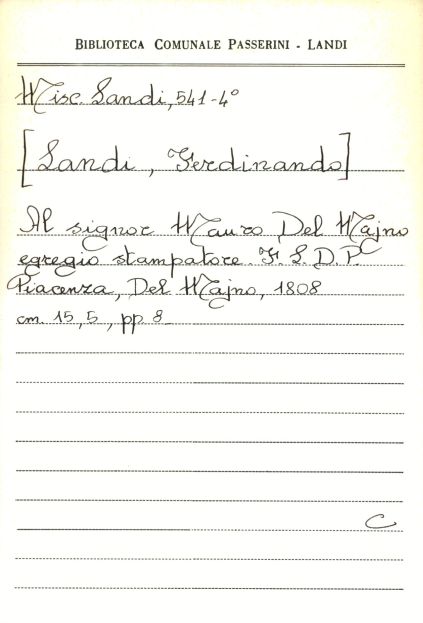 BIBLIOTECA COMUNALE PASSERINI - LANDI
Misc. Landi, 541-4°
[Landi, Ferdinando]
Al signor Mauro Del Majno
egregio stampatore. F. L. D. P.
Piacenza, Del Majno, 1808
cm. 15,5, pp. 8
C